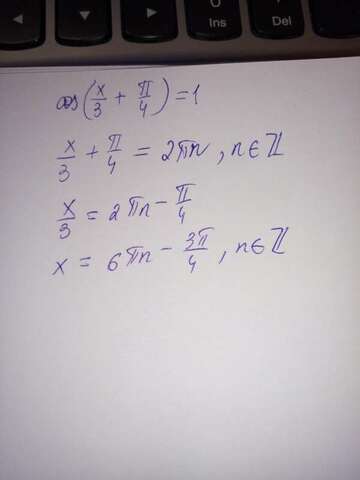 0
Ins
.
Del
cos(x/3 + π/4) = 1
x/3 + π/4 = 2πn, n∈ℤ
x/3 = 2πn − π/4
x = 6πn − 3π/4, n∈ℤ